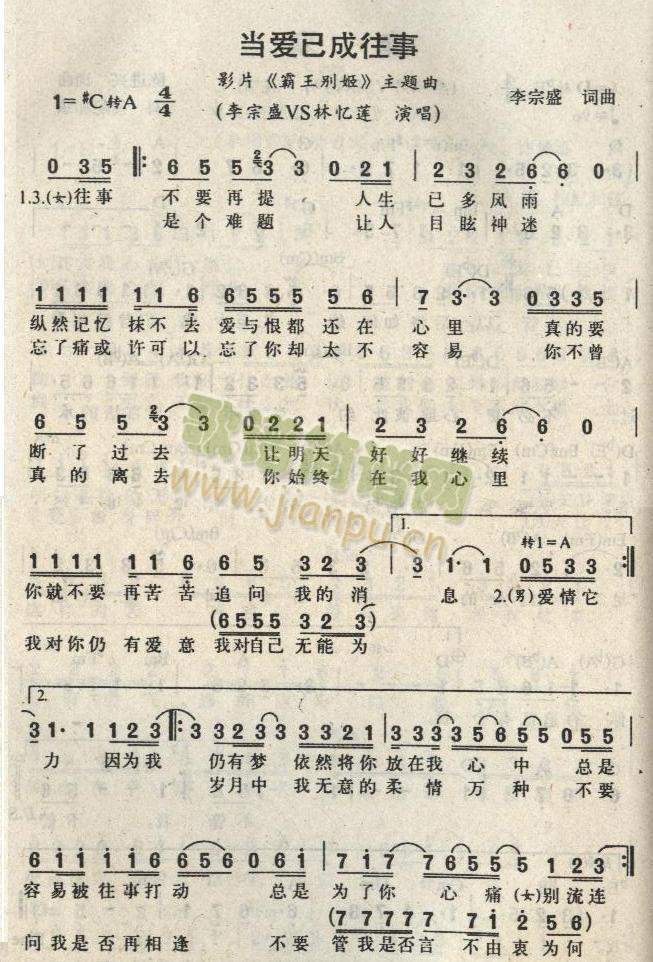 当爱已成往事
影片《霸王别姬》主题曲
1=#C转A 4/4 (李宗盛VS林忆莲 演唱) 李宗盛 词曲
0 3 5 6 5 5 2 3 3 0 2 1 2 3 2 6 6 0
1.3.(女)往事 不要再提 人生 已多风雨
是个难题 让人 目眩神迷
1 1 1 1 1 1 6 6 5 5 5 5 6 7 3· 3 0 3 3 5
纵然记忆 抹不去 爱与恨都 还在 心里 真的要
忘了痛或 许可以 忘了你却 太不 容易 你不曾
6 5 5 2 3 3 0 2 2 1 2 3 2 6 6 0
断了过去 让明天 好好继续
真的离去 你始终 在我心里
歌谱简谱网
www.jianpu.cn
1. 转1=A
1 1 1 1 1 1 6 6 5 3 2 3 3 1· 1 0 5 3 3
你就不要 再苦苦 追问 我的消 息 2.(男)爱情它
(6 5 5 5 3 2 3)
我对你仍 有爱意 我对自己 无能为
2.
3 1· 1 1 1 2 3 3 3 2 3 3 3 3 2 1 3 3 3 3 3 5 6 5 5 0 5 5
力 因为我 仍有梦 依然将你 放在我 心中 总是
岁月中 我无意的 柔情万种 不要
6 1 1 1 1 6 6 5 6 0 6 1 7 1 7 7 6 5 5 5 1 2 3
容易被往事打动 总是 为了你 心痛 (女)别流连
(7 7 7 7 7 7 1 2 5 6)
问我是否再相逢 不要 管我是否言 不由衷为何